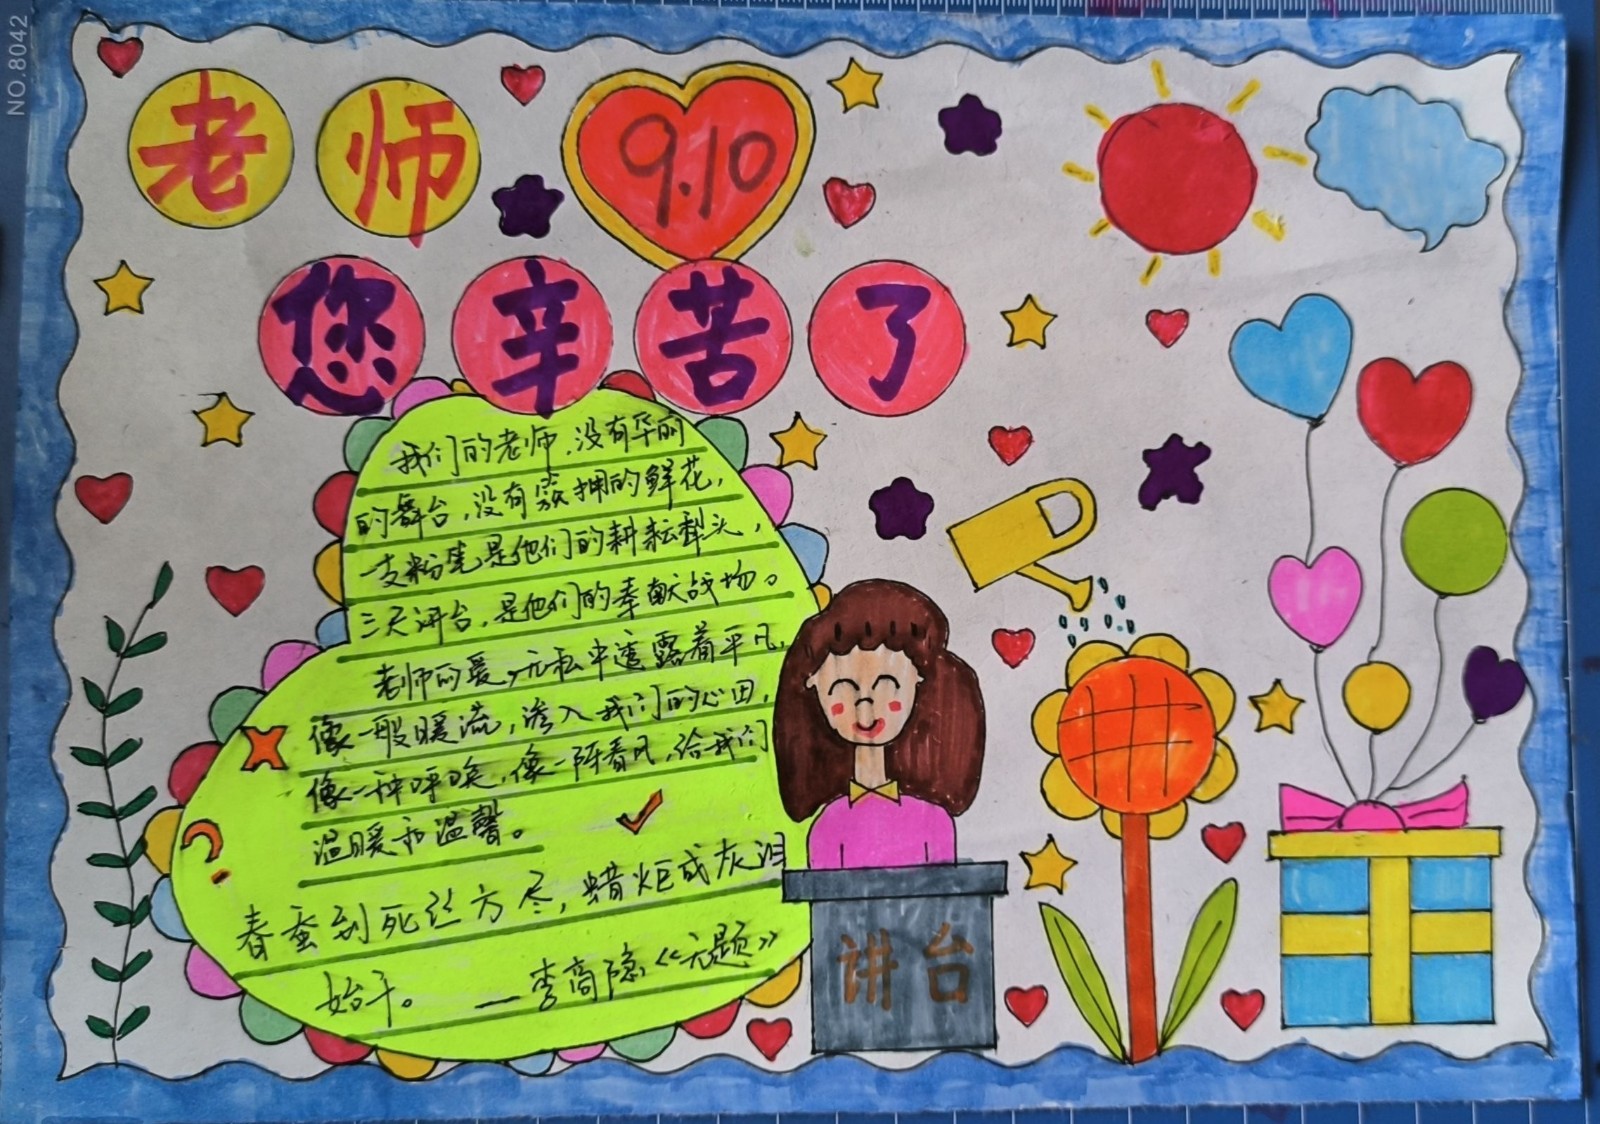 NO.8042
老师
9.10
您辛苦了
我们的老师,没有华丽
的舞台,没有簇拥的鲜花,
一支粉笔是他们的耕耘犁头,
三尺讲台,是他们的奉献战场。
老师的爱,无私中透露着平凡,
像一般暖流,渗入我们的心田,
像一种呼唤,像一阵春风,给我们
温暖和温馨。
春蚕到死丝方尽,蜡炬成灰泪
始干。 —李商隐《无题》
讲台